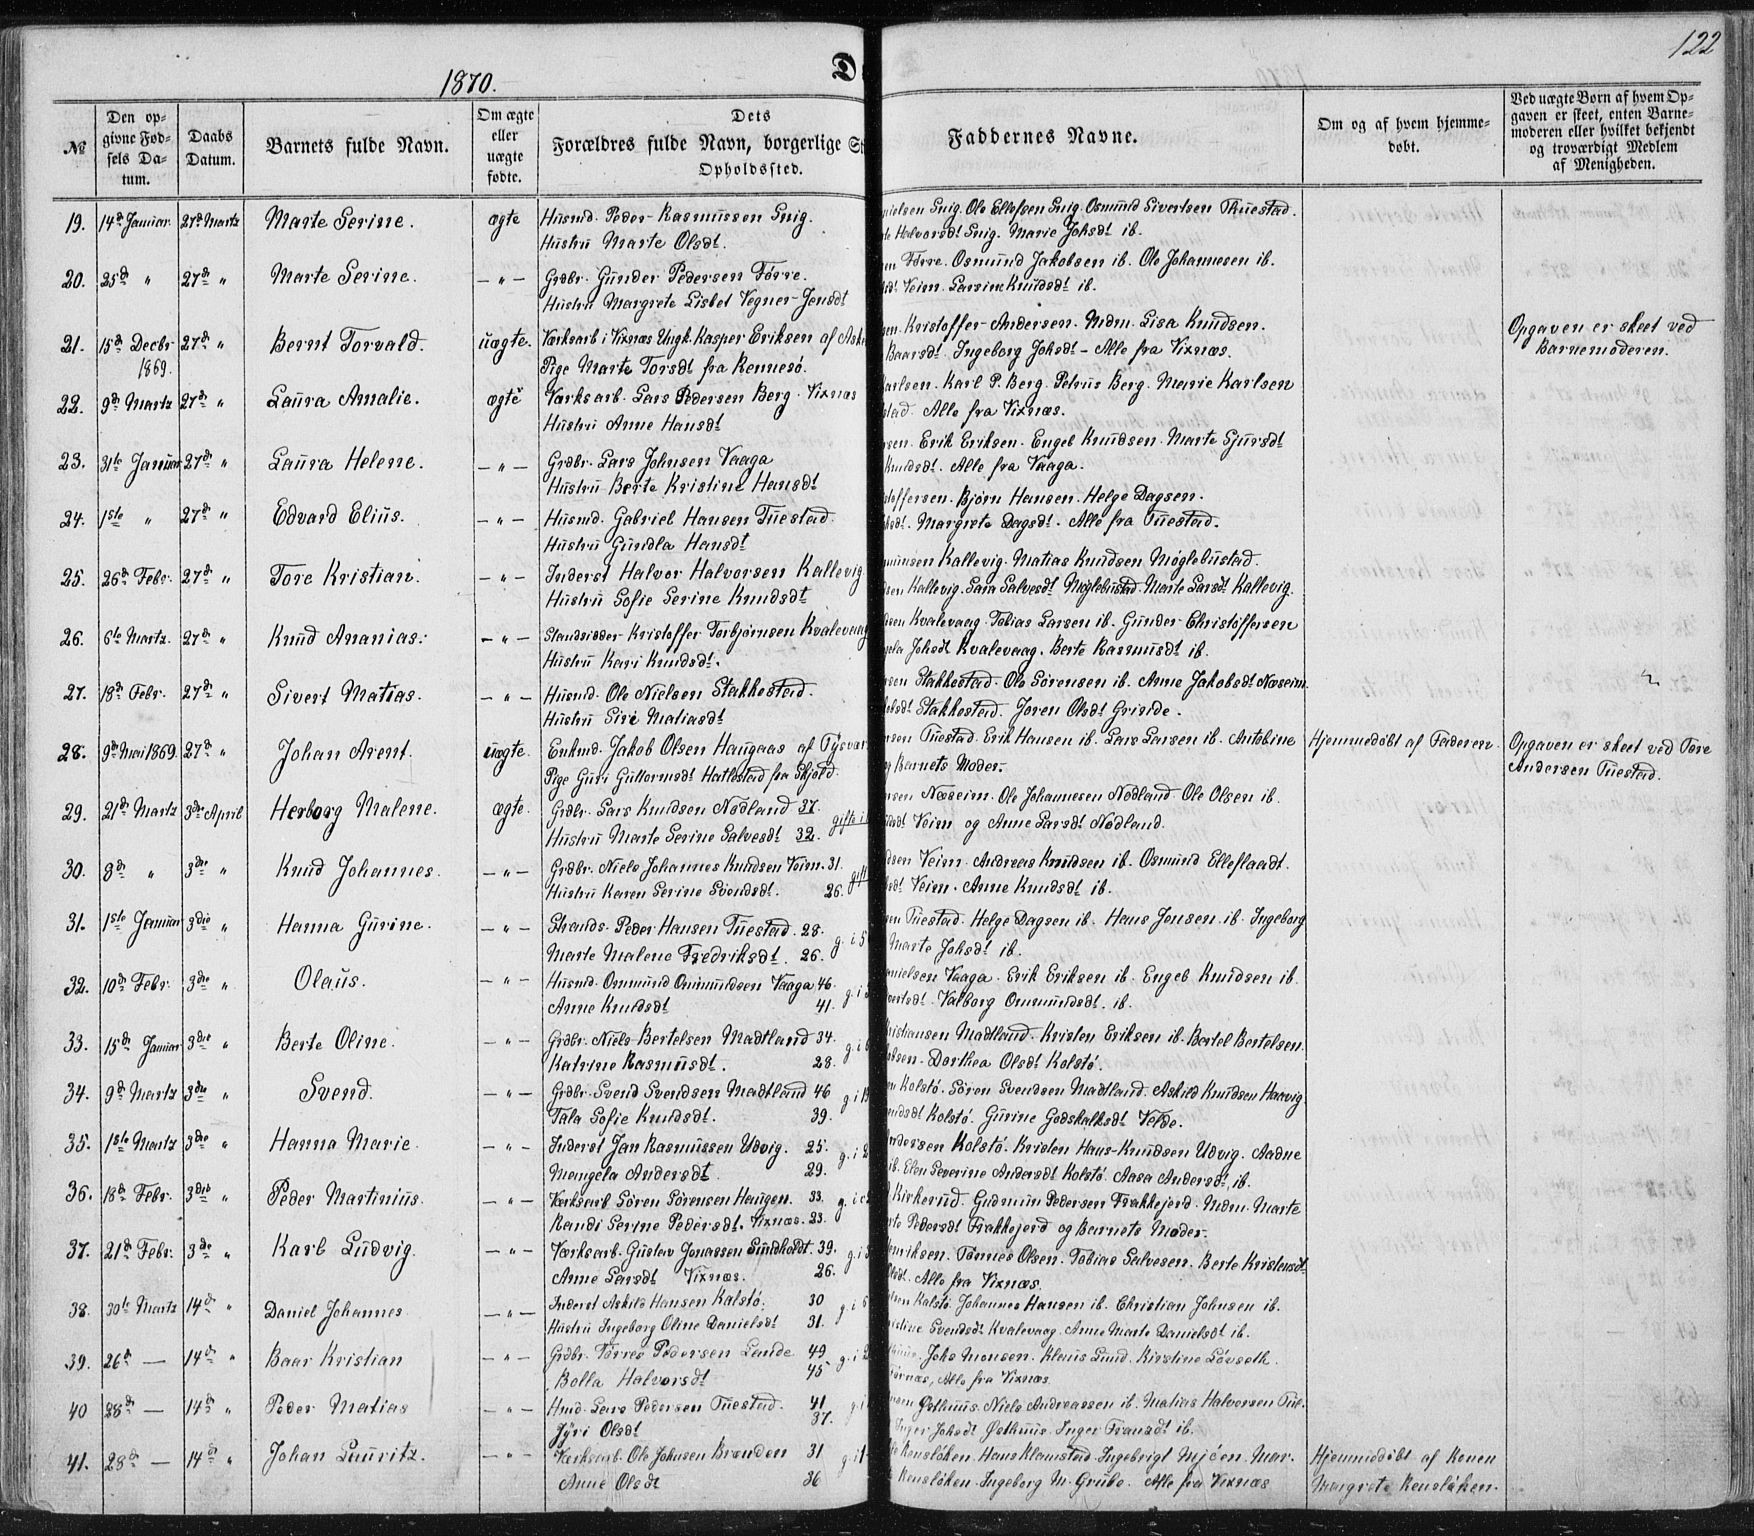 122
1870.
D
№
Den op-
givne Fød-
sels Da-
tum.
Daabs
Datum.
Barnets fulde Navn.
Om ægte
eller
uægte
fødte.
Dets
Forældres fulde Navn, borgerlige St
Opholdssted.
Faddernes Navne.
Om og af hvem hjemme-
døbt.
Ved uægte Børn af hvem Op-
gaven er skeet, enten Barne-
moderen eller hvilket bekjendt
og troværdigt Medlem
af Menigheden.
19. 14de Januar. 27de Martz Marte Serine. ægte Husmd. Peder Rasmussen Snig. nielsen Snig. Ole Ellefsen Snig. Osmund Sivertsen Thuestad.
Hustru Marte Olsdt. te Halvorsdt Snig. Marie Johsdt ib.
20. 25de " 27de " Marte Serine. — " — Grdbr. Gunder Pedersen Førre. en Førre. Osmund Jakobsen ib. Ole Johannesen ib.
Hustru Margrete Lisbet Vegner Jensdt Veim. Larsine Knudsdt ib.
21. 15de Decbr 27de " Bernt Torvald. uægte. Værksarb i Vixnæs Ungk. Kasper Eriksen af Aske en. Kristoffer Andersen. Mdm. Lisa Knudsen. Opgaven er skeet ved
1869. Pige Marte Torsdt fra Rennesø. Baarsdt. Ingeborg Johsdt — Alle fra Vixnæs. Barnemoderen.
22. 9de Martz 27de " Laura Amalie. ægte Værksarb. Lars Pedersen Berg. Vixnæs arlsen. Karl P. Berg. Petrus Berg. Marie Karlsen
Hustru Anne Hansdt stad. Alle fra Vixnæs.
23. 31te Januar 27de " Laura Helene. — " — Grdbr. Lars Johnsen Vaaga rsen. Erik Eriksen. Engel Knudsen. Marte Sjursdt
Hustru Berte Kristine Hansdt Knudsdt. Alle fra Vaaga.
24. 1ste " 27de " Edvard Elius. — " — Husmd. Gabriel Hansen Tuestad. stoffersen. Bjørn Hansen. Helge Dagsen.
Hustru Gundla Hansdt Margrete Dagsdt. Alle fra Tuestad.
25. 26de Febr. 27de " Tore Kristian. — " — Inderst Halvor Halvorsen Kallevig munsen Kallevig. Matias Knudsen Møglebustad.
Hustru Sofie Serine Knudsdt sen Kallevig. Sara Salvesdt Møglebustad. Marte Larsdt Kallevig.
26. 6te Martz. 27de " Knud Ananias. — " — Standsidder Kristoffer Torbjørnsen Kvalevaag sen Kvalevaag. Tobias Larsen ib. Gunder Christoffersen
Hustru Kari Knudsdt. ela Johsdt Kvalevaag. Berte Rasmusdt ib.
27. 18de Febr. 27de " Sivert Matias. — " — Husmd. Ole Nielsen Stakkestad. rsen Stakkestad. Ole Sørensen ib. Anne Jakobsdt Næseim.
Hustru Siri Matiasdt obsdt Stakkestad. Joren Olsdt Grinde.
28. 9de Mai 1869. 27de " Johan Arent. uægte. Enkmd. Jakob Olsen Haugaas af Tysvær nsen Tuestad. Erik Hansen ib. Lars Larsen ib. Antobine Hjemmedøbt af Faderen. Opgaven er skeet ved Tore
Pige Guri Guttormsdt Hatlestad fra Skjold. g Barnets Moder. Andersen Tuestad.
29. 21de Martz 3die April Herborg Malene. ægte. Grdbr. Lars Knudsen Nødland 37. nsen Næseim. Ole Johannesen Nødland. Ole Olsen ib.
Hustru Marte Serine Salvesdt 32. gifte i Veim og Anne Larsdt Nødland.
30. 8de " 3die " Knud Johannes. — " — Grdbr. Niels Johannes Knudsen Veim. 31. dsen Veim. Andreas Knudsen ib. Osmund Elleflaadt.
Hustru Karen Serine Svendsdt. 26. gift Veim. Anne Knudsdt ib.
31. 1ste Januar 3die " Hanna Gurine. — " — Strands. Peder Hansen Tuestad. 28. en Tuestad. Helge Dagsen ib. Hans Jensen ib. Ingeborg
Marte Malene Fredriksdt. 26. g. i 5 Marte Johsdt ib.
32. 10de Febr. 3die " Olaus. — " — Husmd. Ommund Ommundsen Vaaga 46. anielsen Vaaga. Erik Eriksen ib. Engeb Knudsen ib.
Anne Knudsdt 41. g. i vertsdt. Valborg Ommundsdt. ib.
33. 15de Januar 3die " Berte Oline. — " — Grdbr. Niels Bertelsen Madtland 34. ristiansen Madtland. Kristen Eriksen ib. Bertel Bertelsen
Katrine Rasmusdt. 28. g. i 6 obsen. Dorthea Olsdt Kolstø.
34. 9de Martz 3die " Svend. — " — Grdbr. Svend Svendsen Madtland 46 en Kolstø. Sören Svendsen Madtland. Askild Knudsen Haavig
Tala Sofie Knudsdt. 39. g. i 19 ndsdt Kolstø. Gurine Godskalksdt Velde.
35. 1ste Martz 3die " Hanna Marie. — " — Inderst Jan Rasmussen Udvig. 25. ndersen Kolstø. Kristen Hans Knudsen Udvig. Aadne
Mengela Andersdt. 29. g. i 2 ib. Elen Severine Andersdt Kolstø. Aasa Andersdt. ib.
36. 18de Febr. 3die " Peder Martinius. — " — Værksarb Sören Sørensen Haugen. 33. Kirkerud. Gudmun Pedersen Frakkejerd. Mdm. Marte
Randi Serine Pedersdt. Vixnæs. 23. g. i rte Pedersdt Frakkejerd og Barnets Moder.
37. 21de Febr. 3die " Karl Ludvig. — " — Værksarb. Gustav Jonassen Sundholdt. 39. enriksen. Tønnes Olsen. Tobias Salvesen. Berte Kristensdt
Anne Larsdt Vixnæs. 26. g. i Alle fra Vixnæs.
38. 30te Martz 14de " Daniel Johannes. — " — Inderst Askild Hansen Kalstø. 30 lsen Kolstø. Johannes Hansen ib. Christian Johnsen ib.
Hustru Ingeborg Oline Danielsdt 31. g. i 6 ristine Svendsdt Kvalevaag. Anne Marte Danielsdt ib.
39. 26de — 14de " Baar Kristian — " — Grdbr. Tørres Pedersen Lande 49. Johs Monsen. Klaus Lund. Kirstine Løvseth.
Bolla Halvorsdt 45. g. i 2 Alle fra Vixnæs
40 28de — 14de " Peder Matias — " — Hmd. Lars Pedersen Tuestad. 41 Østhuus. Niels Andreassen ib. Matias Halvorsen Tue-
Jyri Olsdt 37. g. i Inger Johsdt Østhuus. Inger Fransdt ib.
41. 28de — 14de " Johan Lauritz. — " — Værksarb. Ole Johnsen Brænden 31 Rensløken. Hans Klamstad. Ingebrigt Mjöen. Mar- Hjemmedøbt af Konen
Anne Olsdt 36 g. i 1 Rensløken. Ingeborg M. Grube. Alle fra Vixnæs Margrete Rensløken.